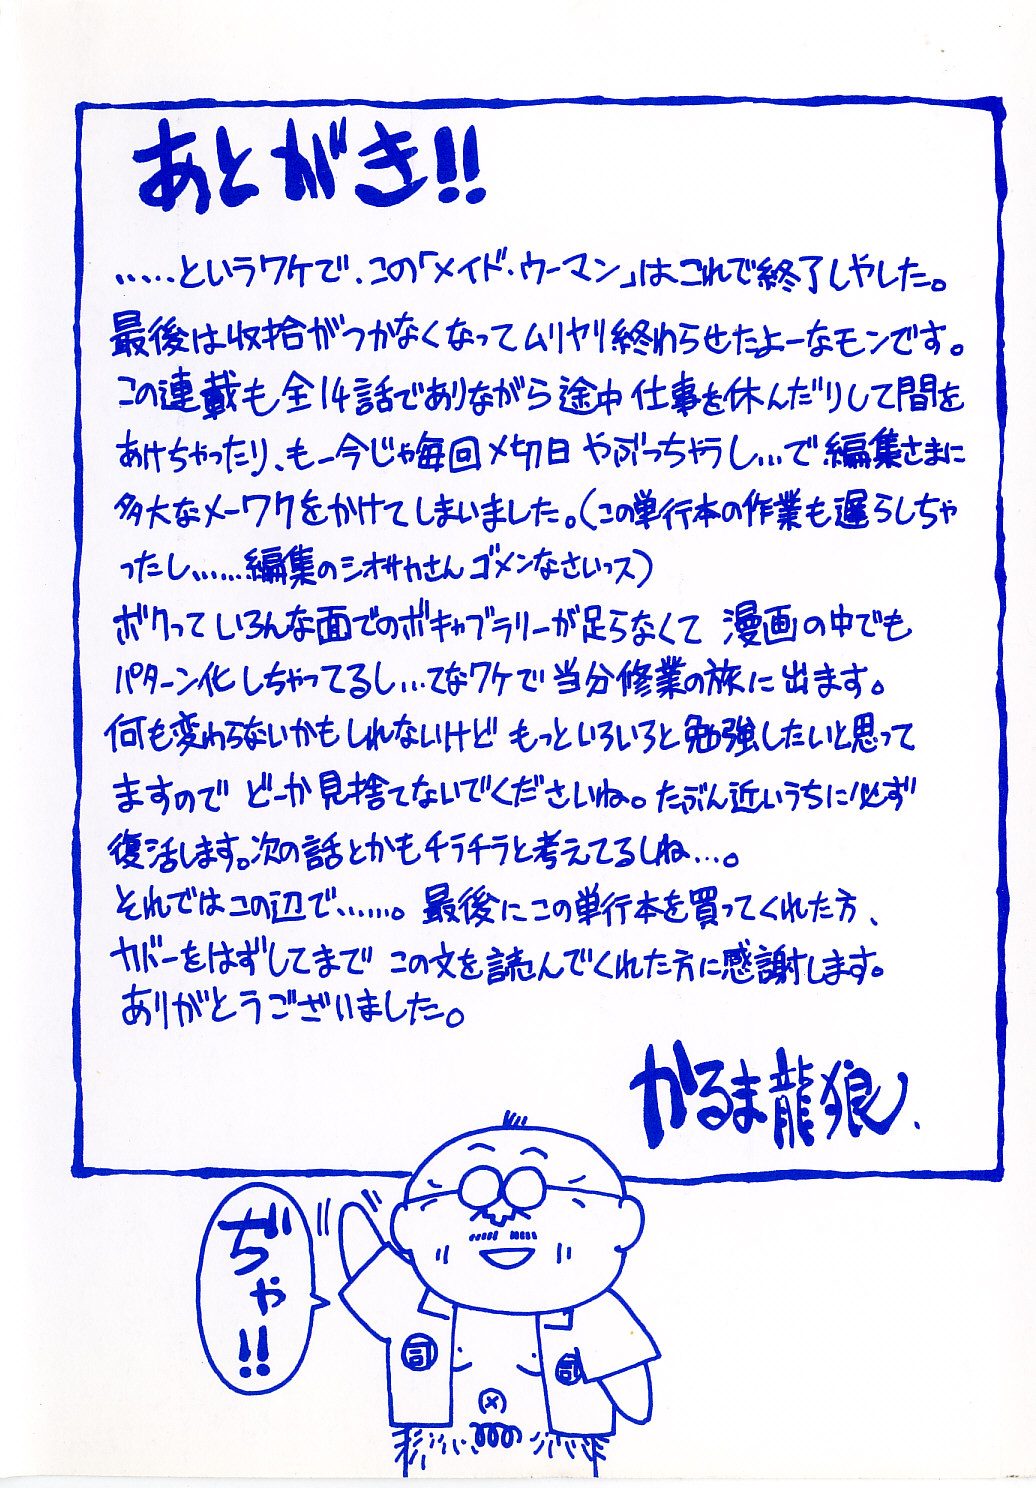 あとがき!!
……というワケで、この「メイド・ウーマン」はこれで終了しやした。
最後は収拾がつかなくなってムリヤリ終わらせたよーなモンです。
この連載も全14話でありながら途中仕事を休んだりして間を
あけちゃったり、もー今じゃ毎回〆切日やぶっちゃうし…で編集さまに
多大なメーワクをかけてしまいました。(この単行本の作業も遅らしちゃ
ったし……編集のシオサカさんゴメンなさいっス)
ボクっていろんな面でのボキャブラリーが足らなくて 漫画の中でも
パターン化しちゃってるし…てなワケで当分修業の旅に出ます。
何も変わらないかもしれないけど もっといろいろと勉強したいと思って
ますので どーか見捨てないでくださいね。たぶん近いうちに必ず
復活します。次の話とかもチラチラと考えてるしね…。
それではこの辺で……。最後にこの単行本を買ってくれた方、
カバーをはずしてまで この文を読んでくれた方に感謝します。
ありがとうございました。
かるま龍狼、
ぢゃ!!
司
司